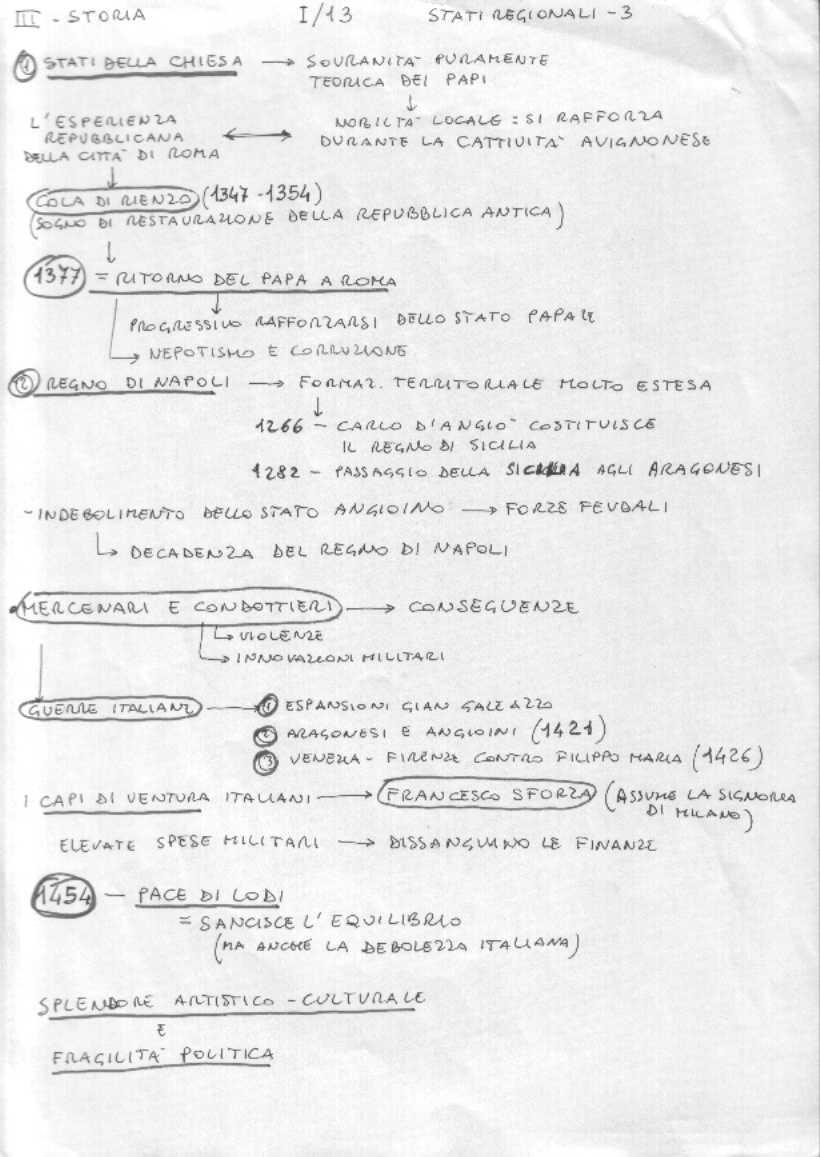 III - STORIA I/13 STATI REGIONALI - 3
① STATI DELLA CHIESA → SOVRANITA' PURAMENTE
TEORICA DEI PAPI
↓
L'ESPERIENZA
REPUBBLICANA
DELLA CITTA' DI ROMA
↔ NOBILTA' LOCALE : SI RAFFORZA
DURANTE LA CATTIVITA' AVIGNONESE
↓
COLA DI RIENZO (1347 - 1354)
(SOGNO DI RESTAURAZIONE DELLA REPUBBLICA ANTICA)
↓
1377 = RITORNO DEL PAPA A ROMA
PROGRESSIVO RAFFORZARSI DELLO STATO PAPALE
↳ NEPOTISMO E CORRUZIONE
② REGNO DI NAPOLI → FORMAZ. TERRITORIALE MOLTO ESTESA
↓
1266 - CARLO D'ANGIO' COSTITUISCE
IL REGNO DI SICILIA
1282 - PASSAGGIO DELLA SICILIA AGLI ARAGONESI
- INDEBOLIMENTO DELLO STATO ANGIOINO → FORZE FEUDALI
↳ DECADENZA DEL REGNO DI NAPOLI
• MERCENARI E CONDOTTIERI → CONSEGUENZE
↳ VIOLENZE
↳ INNOVAZIONI MILITARI
GUERRE ITALIANE → ① ESPANSIONI GIAN GALEAZZO
② ARAGONESI E ANGIOINI (1421)
③ VENEZIA - FIRENZE CONTRO FILIPPO MARIA (1426)
I CAPI DI VENTURA ITALIANI → FRANCESCO SFORZA (ASSUME LA SIGNORIA
DI MILANO)
ELEVATE SPESE MILITARI → DISSANGUINO LE FINANZE
1454 - PACE DI LODI
= SANCISCE L'EQUILIBRIO
(MA ANCHE LA DEBOLEZZA ITALIANA)
SPLENDORE ARTISTICO - CULTURALE
E
FRAGILITA' POLITICA